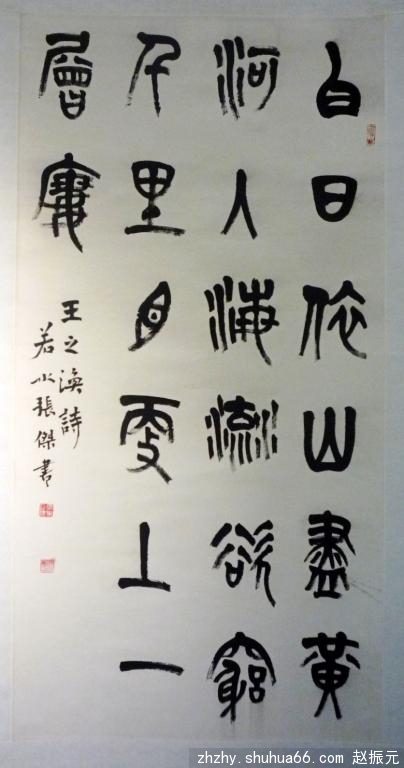 白日依山盡黃
河入海流欲窮
千里目更上一
層廔
王之渙詩
若水張傑書
zhzhy.shuhua66.com 赵振元